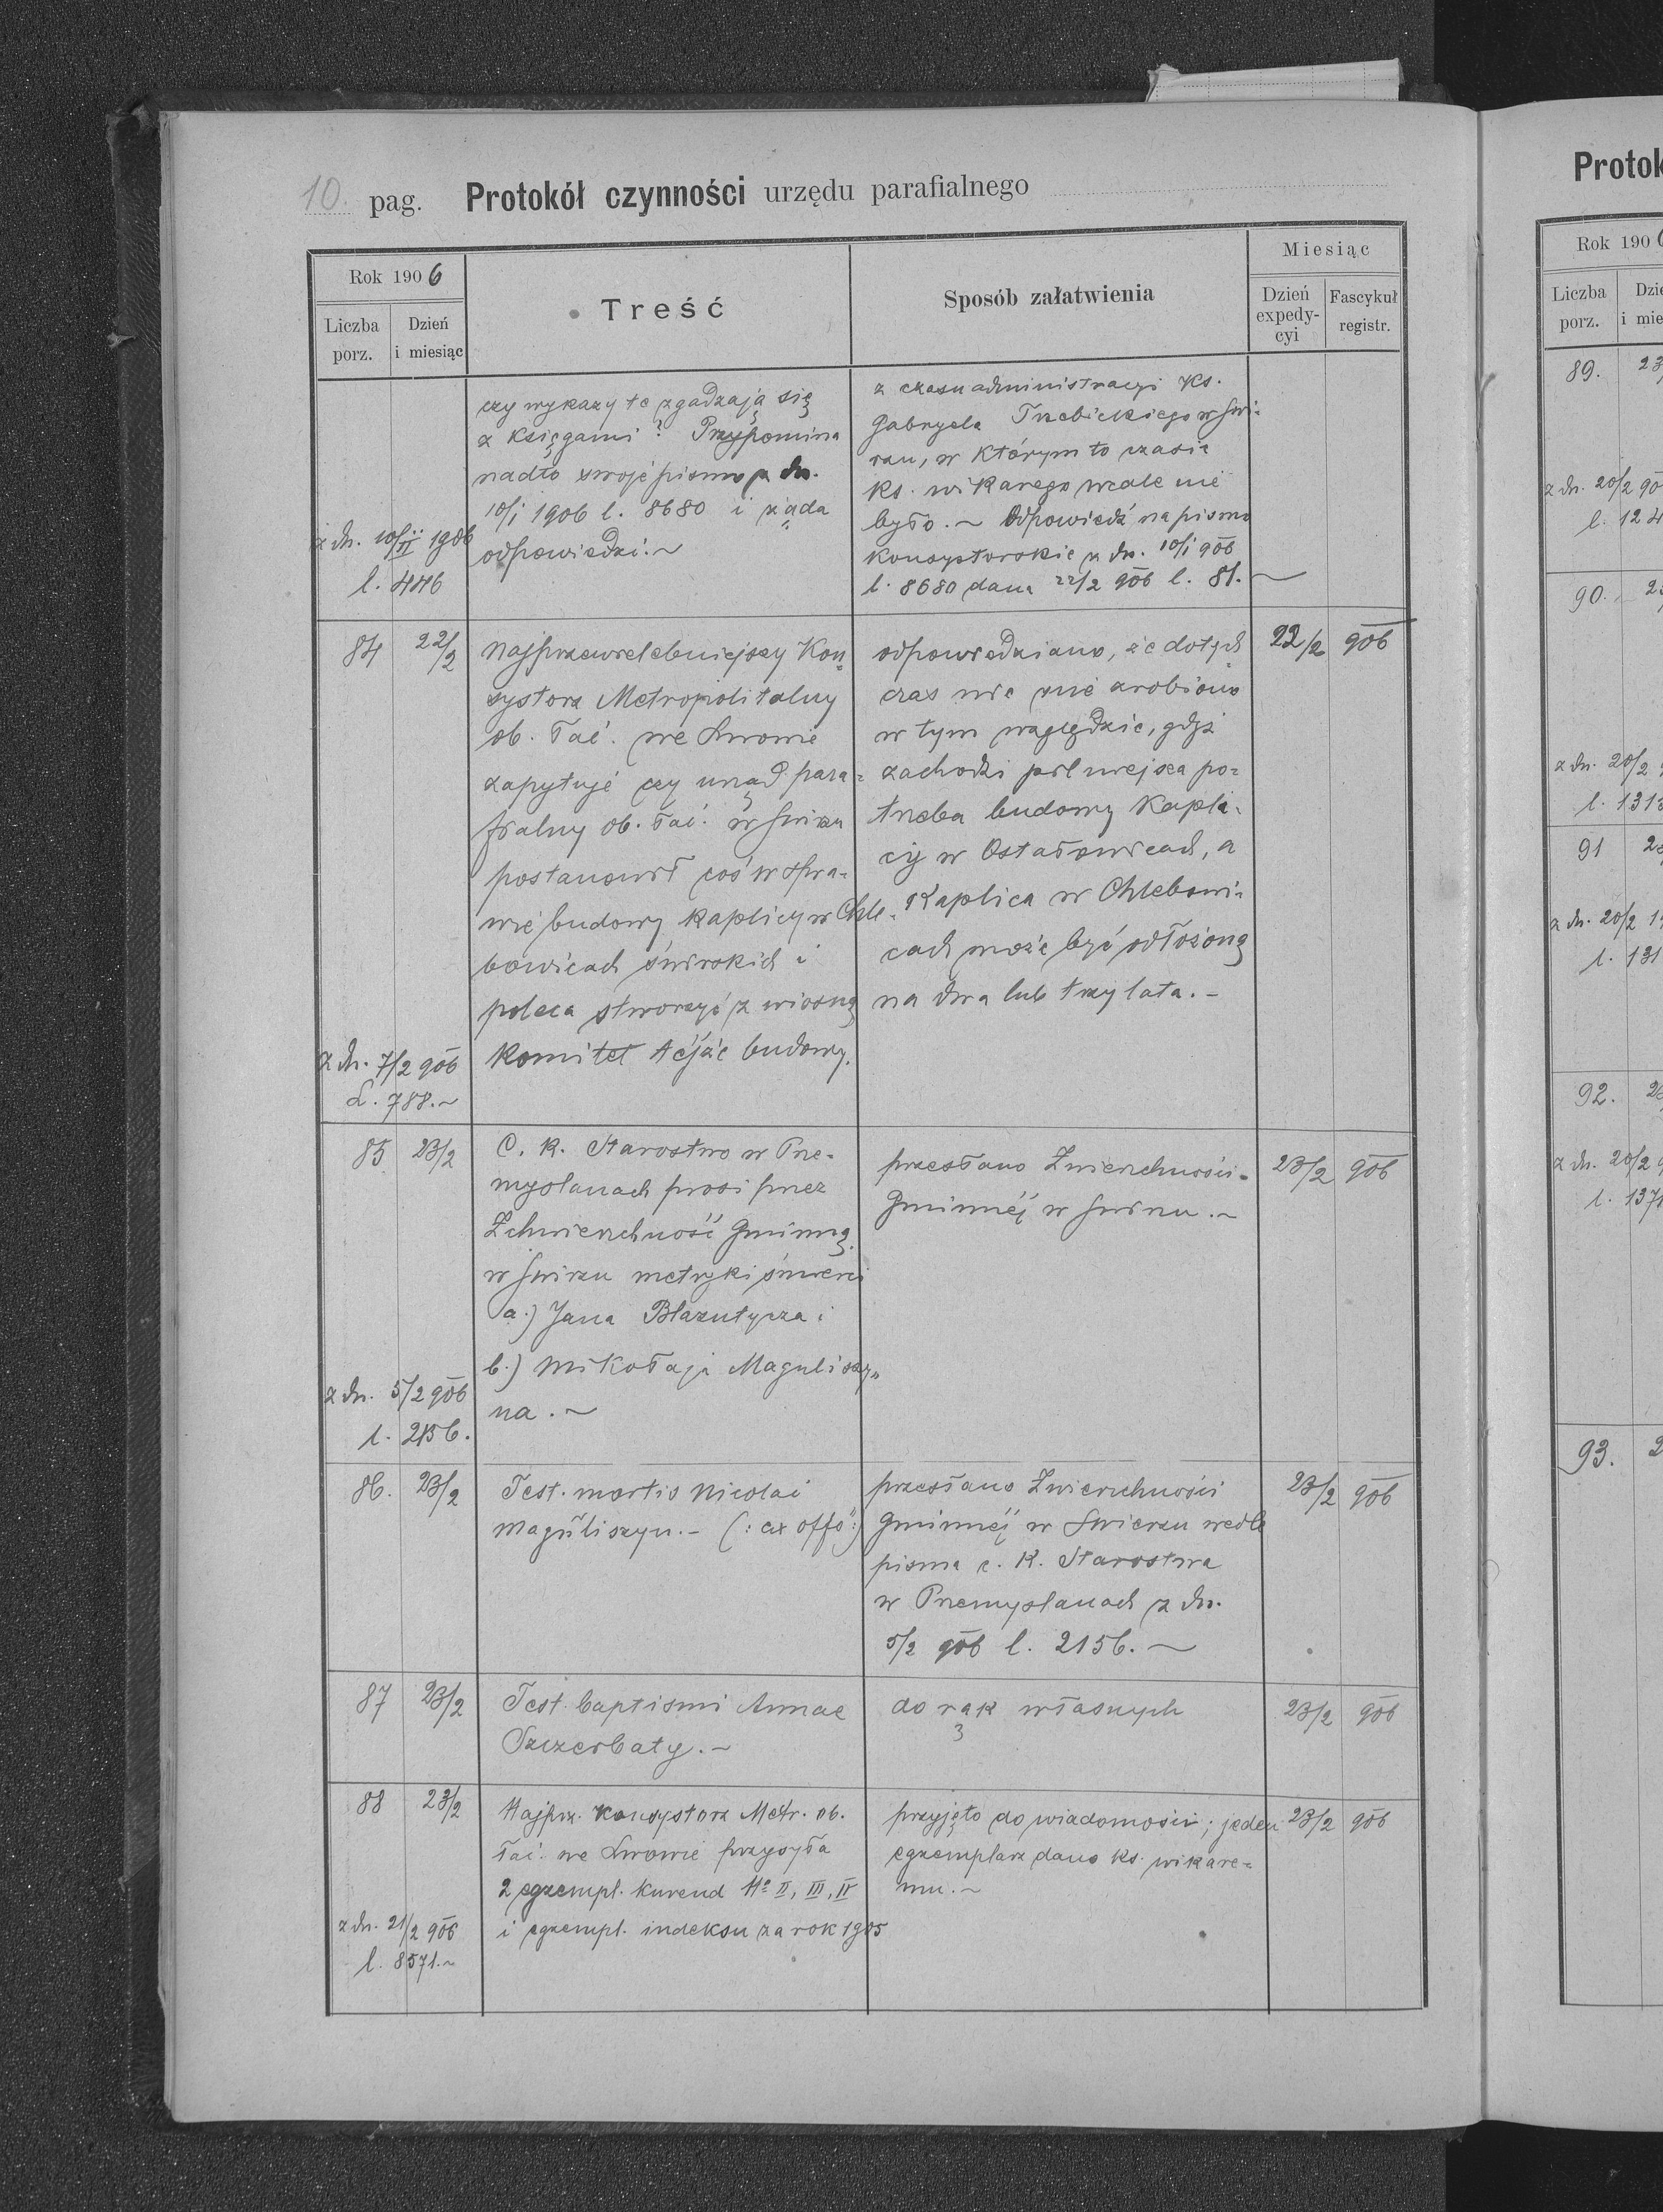 10. pag. Protokół czynności urzędu parafialnego
Rok 1906
Liczba porz.
Dzień i miesiąc
Treść
Sposób załatwienia
Miesiąc
Dzień expedycyi
Fascykuł registr.
czy wykazy te zgadzają się
z księgami? Przypomina
nadto swoje pismo z dn.
10/I 1906 l. 8680 i żąda
odpowiedzi. ~
z dn. 10/II 1906
l. 446
z czasu administracyi ks.
Gabryela Trzebickiego w Świ-
rzu, w którym to czasie
ks. wikarego wcale nie
było. ~ Odpowiedź na pismo
konsystorskie z dn. 10/I 906
l. 8680 dana 22/2 906 l. 81. ~
84 22/2
Najprzewielebniejszy Kon-
systorz Metropolitalny
ob. łać. we Lwowie
zapytuje czy urząd para-
fialny ob. łać. w Świrzu
postanowił coś w spra-
wie budowy kaplicy w Chle-
bowicach świrskich i
poleca stworzyć z wiosną
Komitet tejże budowy.
z dn. 7/2 906
L. 788. ~
odpowiedziano, że dotych-
czas nic nie zrobiono
w tym względzie, gdyż
zachodzi pilniejsza po-
trzeba budowy kapli-
cy w Ostałowicach, a
Kaplica w Chlebowi-
cach może być odłożoną
na dwa lub trzy lata. -
22/2 906
85 23/2
C. K. Starostwo w Prze-
myślanach prosi przez
Zchwierzchność Gminną
w Świrzu metryki śmierci
a.) Jana Blazutycza i
b.) Mikołaja Maguliszy-
na. ~
z dn. 5/2 906
l. 2156.
przesłano Zwierzchności
Gminnéj w Świrzu. ~
23/2 906
86. 23/2
Test. mortis Nicolai
Maguliszyn. - (: ex offo :)
przesłano Zwierzchności
Gminnéj w Swierzu wedle
pisma c. K. Starostwa
w Przemyślanach z dn.
5/2 906 l. 2156. ~
23/2 906
87 23/2
Test. baptismi Annae
Szczerbaty. ~
do rąk własnych
23/2 906
88 23/2
Najprz. Konsystorz Metr. ob.
łać. we Lwowie przysyła
2 egzempl. Kurend No II, III, IV
i egzempl. indeksu za rok 1905
z dn. 21/2 906
l. 8571. ~
przyjęto do wiadomości; jeden
egzemplarz dano ks. wikare-
mu. ~
23/2 906
Protok
Rok 190
Liczba porz.
89.
z dn. 20/2
90.
z dn. 20/2
91
z dn. 20/2
92.
z dn. 20/2
93.